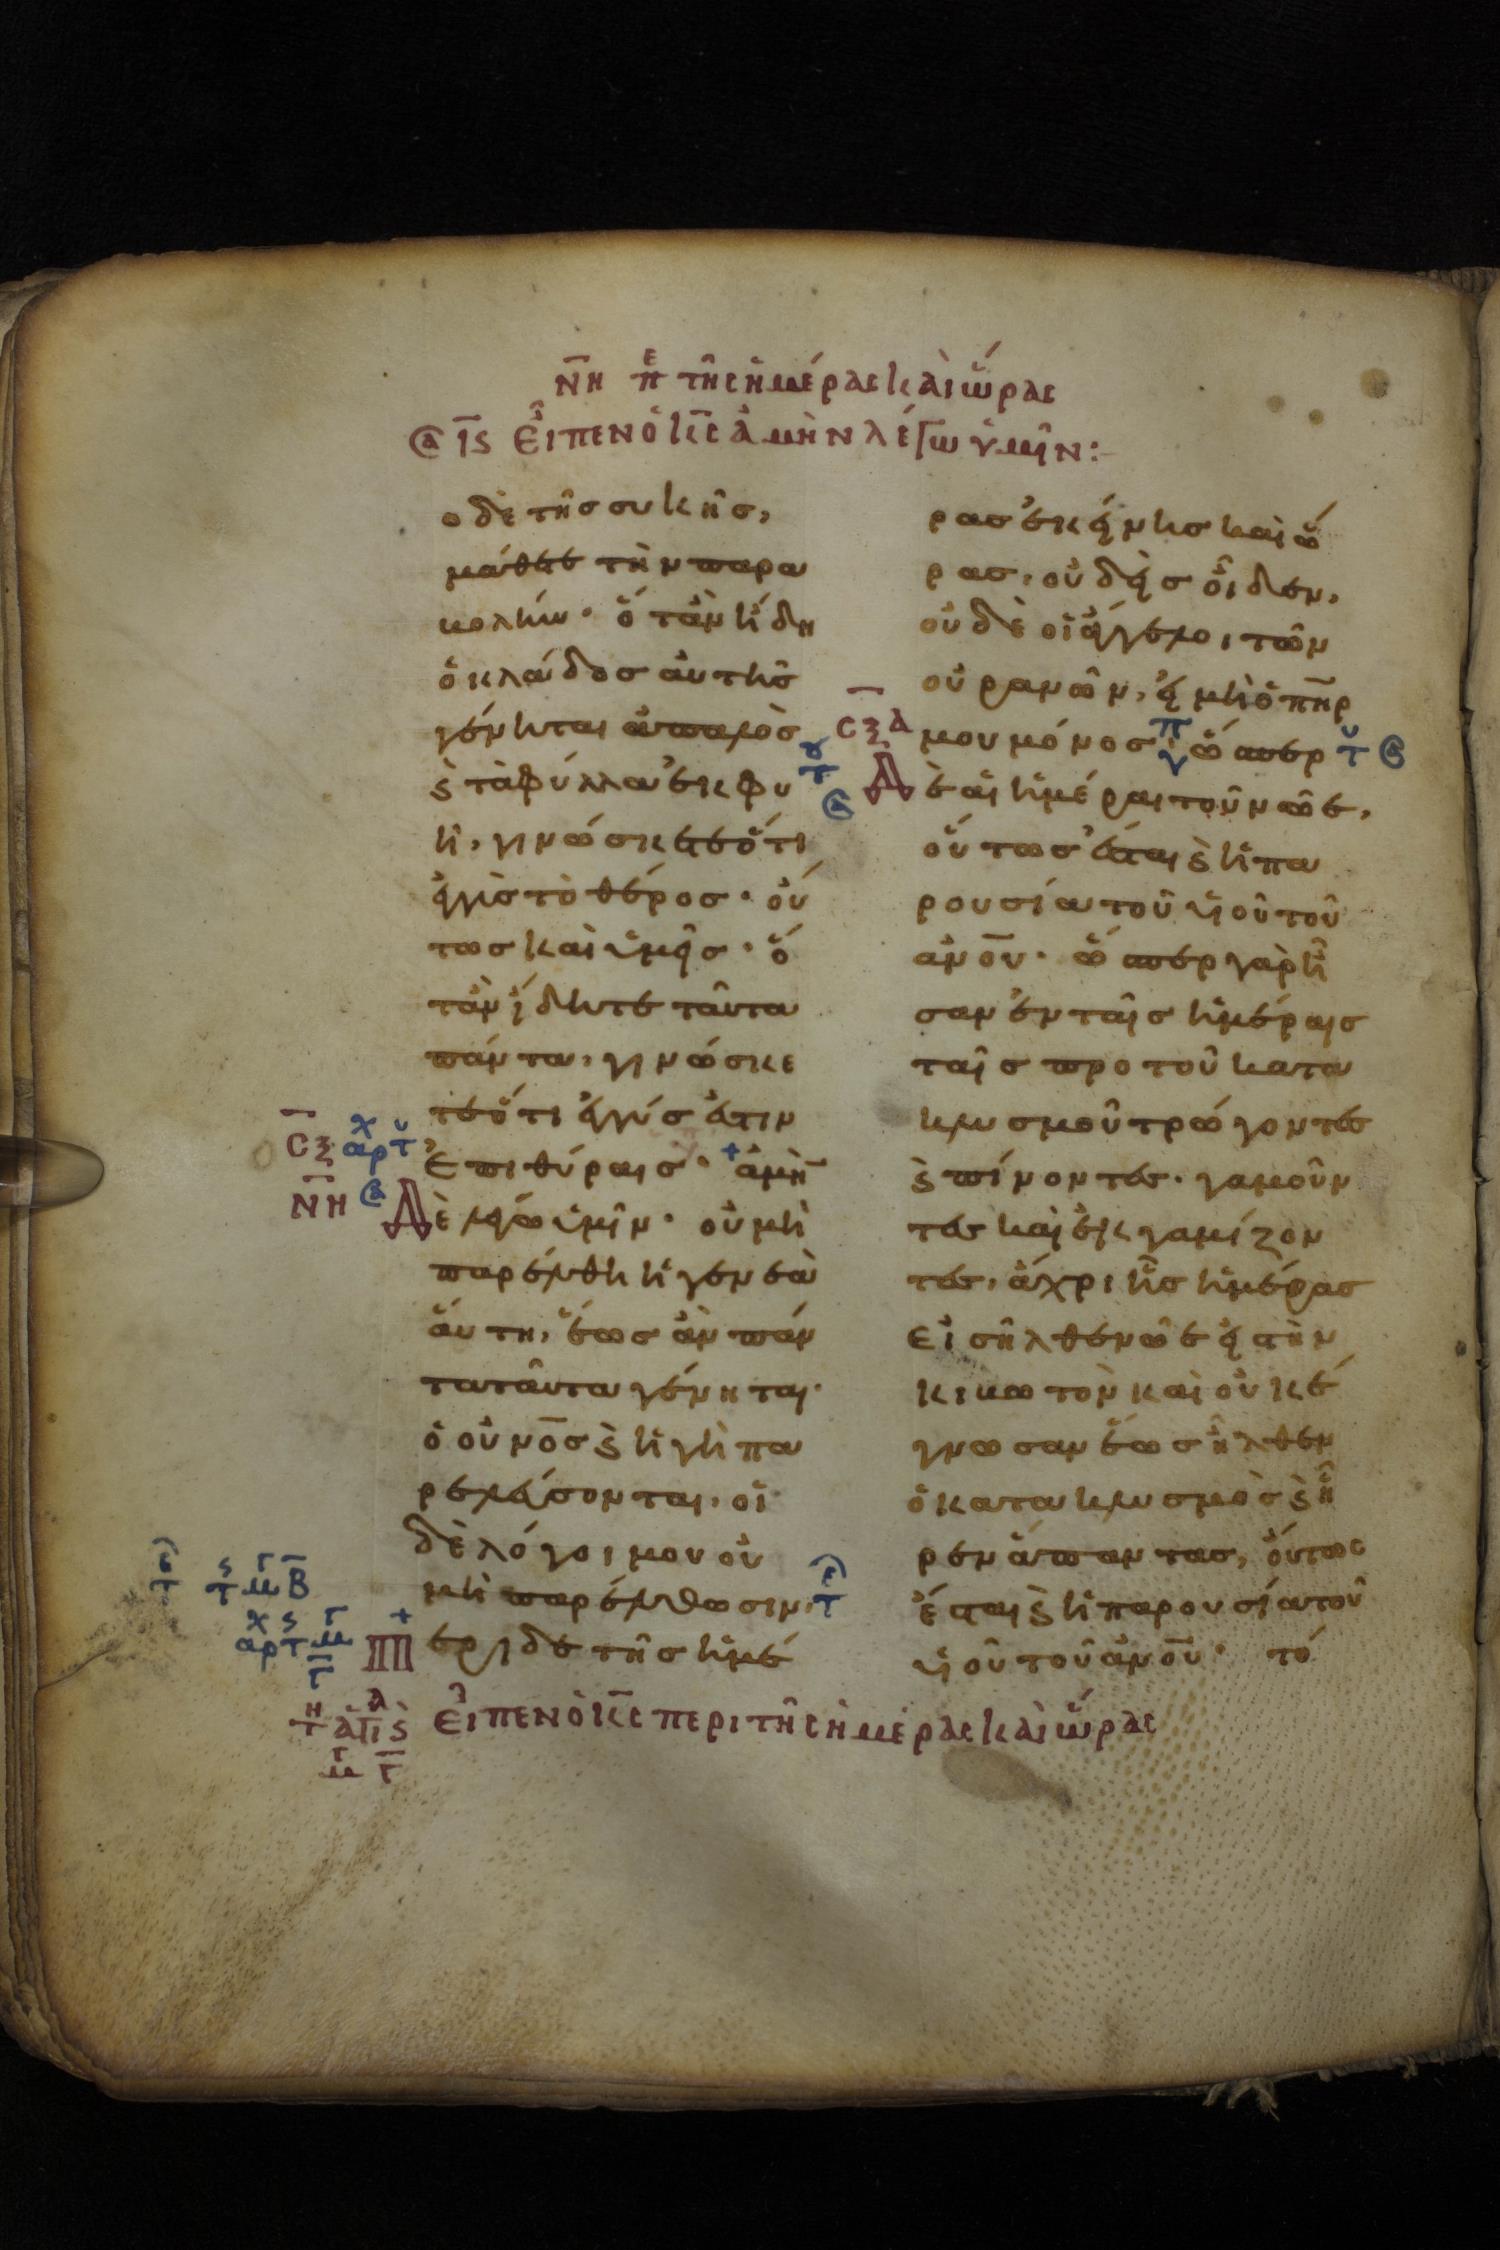 ν̅η π̅ε τῆς ἡμέρας καὶ ὥρας
ι̅ς εἶπεν ὁ κ̅ς ἀμὴν λέγω ὑμῖν:
ο δὲ τῆσ συκῆσ,
μάθετε τὴν παρα
βολήν· ὅταν ἤδη
ὁ κλάδοσ αὐτῆσ
γένηται ἁπαλὸσ
ϛ̀ τὰ φύλλα ἐκφυ
ῆ, γινώσκετε ὅτι
ἐγγὺσ τὸ θέροσ· οὕ
τωσ καὶ ὑμεῖσ· ὅ
ταν ἴδητε ταῦτα
πάντα, γινώσκε
τε ὅτι ἐγγύσ ἐστιν
ἐπι θύραισ· ἀμὴ̅
λέγω ὑμῖν· οὐ μὴ
παρέλθη ἡ γενεὰ
ἅυτη, ἕωσ ἀν πάν
τα ταῦτα γένηται·
ὁ οὐνο̅σ ϛ̀ ἡ γὴ πα
ρελέυσονται, οἱ
δὲ λόγοι μου οὐ
μὴ παρέλθωσιν·
Περὶ δε τῆσ ἡμέ
ρασ ἐκείνησ καὶ ὥ
ρασ, οὐδεὶσ οἶδεν,
οὐδὲ οἱ ἄγγελοι τῶν
οὐρανῶν, εἰ μὴ ὁ π̅ηρ
μου μόνοσ· ὥσπερ
δὲ αἱ ἡμέραι τοῦ νῶε,
οὕτωσ ἔσται ϛ̀ ἡ πα
ρουσία τοῦ υἱοῦ τοῦ
αν̅ου· ὥσπερ γὰρ ἦ
σαν ἐν ταῖσ ἡμέραισ
ταῖσ προ τοῦ κατα
κλυσμοῦ τρώγοντεσ
ϛ̀ πίνοντεσ· γαμοῦν
τεσ καὶ ἐκγαμίζον
τεσ, ἄχρι ἧσ ἡμέρασ
εἰσῆλθεν νῶε εἰσ τὴν
κιβωτὸν καὶ οὐκ ἔ
γνωσαν ἕωσ ἦλθεν
ὁ κατακλυσμὸσ ϛ̀ ἦ
ρεν ἅπαντασ, οὕτωσ
ἔσται ϛ̀ ἡ παρουσία τοῦ
υἱοῦ τοῦ αν̅ου· τό
εἶπεν ὁ κ̅ς περι τῆς ἡμέρας καὶ ὥρας